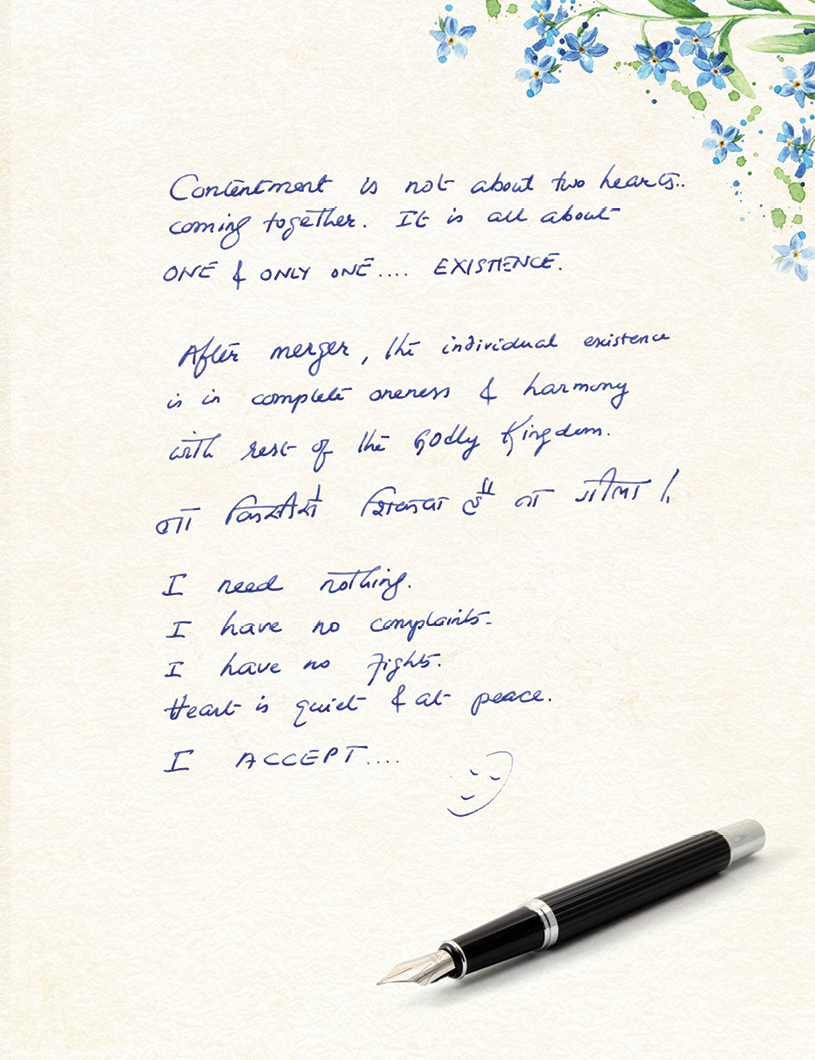 Contentment is not about two hearts..
coming together. It is all about
ONE & ONLY ONE.... EXISTENCE.
After merger, the individual existence
is in complete oneness & harmony
with rest of the Godly Kingdom.
I need nothing.
I have no complaints.
I have no fights.
Heart is quiet & at peace.
I ACCEPT....